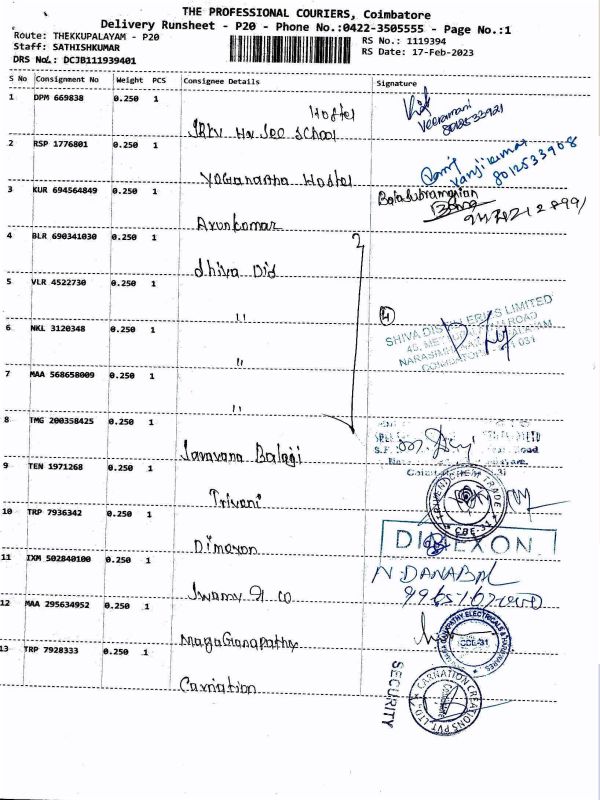 THE PROFESSIONAL COURIERS, Coimbatore
Delivery Runsheet - P20 - Phone No.:0422-3505555 - Page No.:1
Route: THEKKUPALAYAM - P20
RS No.: 1119394
Staff: SATHISHKUMAR
RS Date: 17-Feb-2023
DRS No.: DCJB111939401
S No Consignment No Weight PCS Consignee Details Signature
1 DPM 669838 0.250 1
Hostel
School
Veeramani
2 RSP 1776801 0.250 1
Hostel
8012533908
3 KUR 694564849 0.250 1
Arunkumar
Balasubramanian
4 BLR 690341030 0.250 1
Shiva Dis
5 VLR 4522730 0.250 1
"
4
SHIVA DISTILLERIES LIMITED
6 NKL 3120348 0.250 1
"
7 MAA 568658009 0.250 1
"
8 TMG 200358425 0.250 1
Saravana Balaji
9 TEN 1971268 0.250 1
Trivani
TRADE
CBE-31
10 TRP 7936342 0.250 1
Dimexon
DIMEXON
11 IXM 502840100 0.250 1
Swamy & co
N. DANABAL
12 MAA 295634952 0.250 1
MagaGanapathy
GANAPATHY ELECTRICALS & HARDWARES
CBE-31
13 TRP 7928333 0.250 1
Carnation
SECURITY
CARNATION CREATIONS PVT LTD